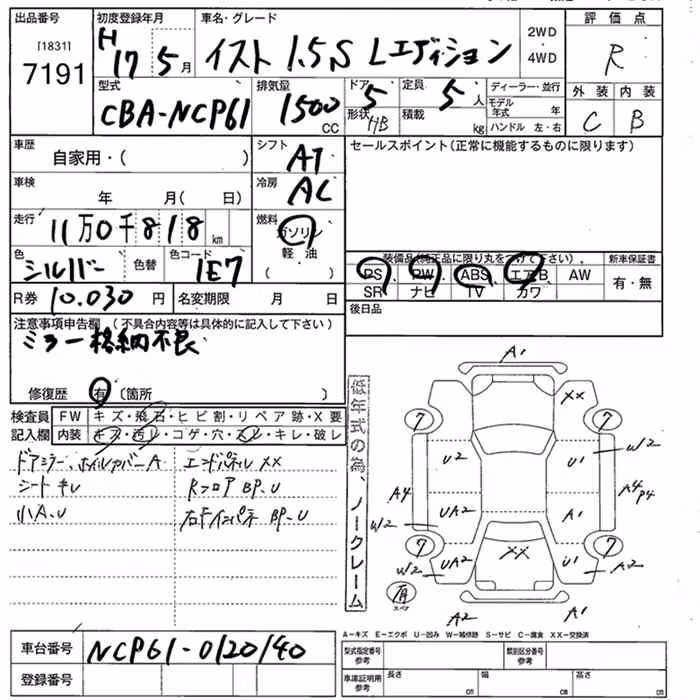 出品番号
[1831]
7191
初度登録年月
H17 5月
車名・グレード
イスト 1.5S Lエディション
2WD
・
4WD
評価点
R
型式
CBA-NCP61
排気量
1500
CC
ドア 5
形状 HB
定員 5人
積載 kg
ディーラー・並行
モデル年式 年
ハンドル 左・右
外装 内装
C B
車歴
自家用・( )
シフト
AT
セールスポイント(正常に機能するものに限ります)
車検
年 月( 日)
冷房
AC
走行
11万0千818km
燃料
ガソリン
軽油
( )
色
シルバー
色替
色コード
1E7
装備品(純正品に限り丸をつけて下さい)。
新車保証書
PS PW ABS エアB AW
有・無
SR ナビ TV カワ
R券 10.030円
名変期限 月 日
後日品
注意事項申告欄 (不具合内容等は具体的に記入して下さい)
ミラー格納不良
修復歴 有 (箇所 )
検査員
記入欄
FW キズ・飛石・ヒビ割・リペア跡・X要
内装 キズ・汚レ・コゲ・穴・スレ・キレ・破レ
ドアミラー、ホイルカバーA
エンドパネルXX
シートキレ
Rフロア BP.U
小A.U
BP.U
の為、ノークレーム
A1
XX
7 7
U2 U1 W2
A4 A4 P4
UA2 A1
W2
7 7
W2 UA2 XX U1 A2
有
スペア
A2 A1
A-キズ E-エクボ U-凹み W-補修跡 S-サビ C-腐食 XX-交換済
車台番号
NCP61-0120140
登録番号
型式指定番号
参考
類別区分番号
参考
車庫証明用
参考
長さ cm
幅 cm
高さ cm